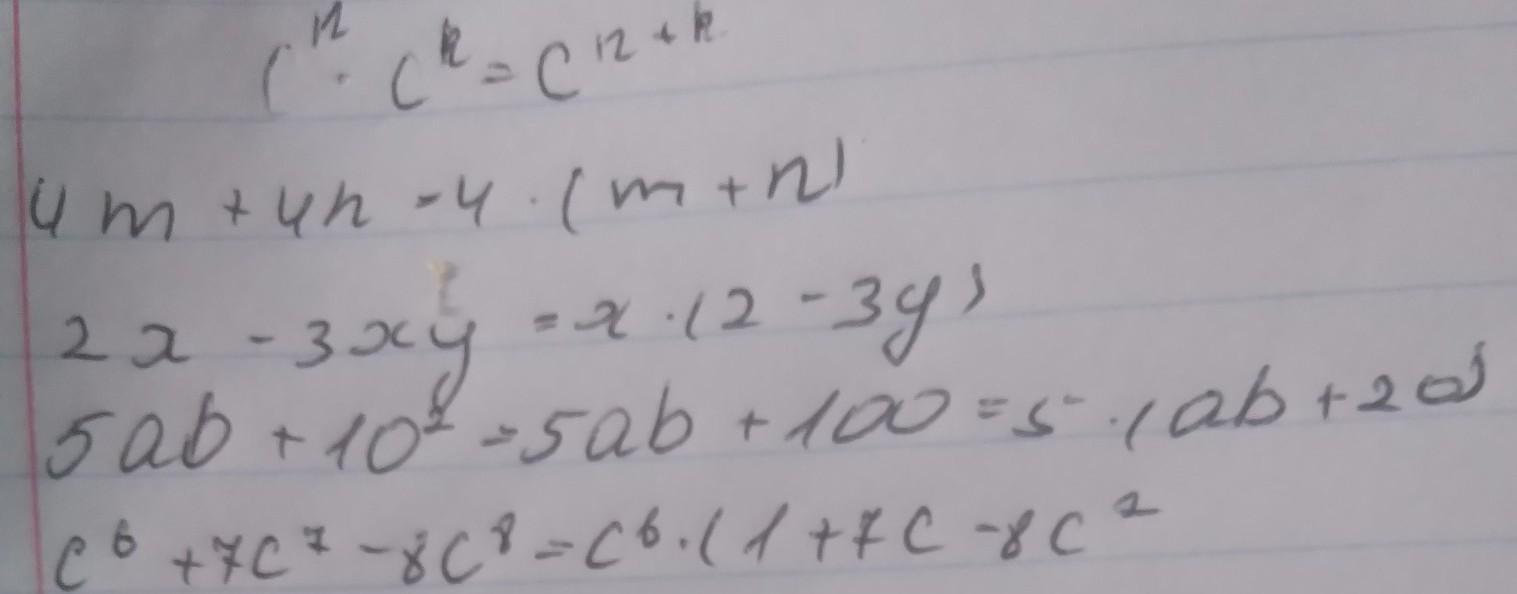 cⁿ · cᵏ = cⁿ⁺ᵏ
4m + 4n = 4 · (m + n)
2x - 3xy = x · (2 - 3y)
5ab + 10² = 5ab + 100 = 5 · (ab + 20)
c⁶ + 7c⁷ - 8c⁸ = c⁶ · (1 + 7c - 8c²